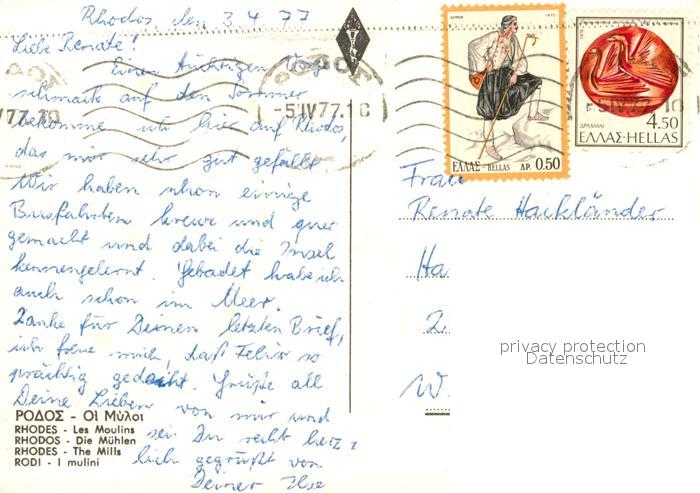 Rhodos, den 3.4.77
Liebe Renate!
Einen Vorge-
schmack auf den Sommer
bekomme ich hier auf Rhodos,
das mir sehr gut gefällt.
Wir haben schon einige
Busfahrten kreuz und quer
gemacht und dabei die Insel
kennengelernt. Gebadet habe ich
auch schon im Meer.
Danke für Deinen letzten Brief,
ich freue mich, daß Felix so
prächtig gedeiht. Grüße all
Deine Lieben von mir und
sei Du recht herz-
lich gegrüßt von
Deiner Ilse
ΡΟΔΟΣ - Οἱ Μύλοι
RHODES - Les Moulins
RHODOS - Die Mühlen
RHODES - The Mills
RODI - I mulini
ΡΟΔΟΣ
-5IV77.1
5IV77.10
ΕΛΛΑΣ-HELLAS ΔΡ. 0.50
1973
1976
ΔΡΑΧΜΑΙ 4.50
ΕΛΛΑΣ-HELLAS
Frau
Renate Hackländer
Ha
2
W
privacy protection
Datenschutz